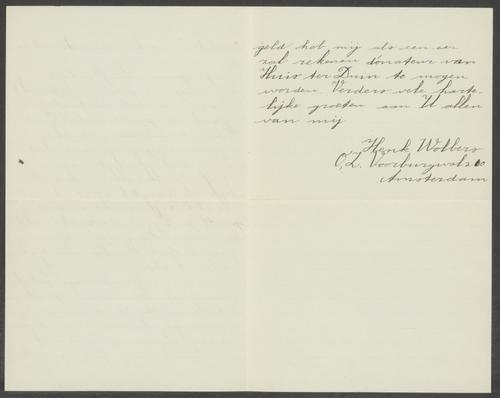 geld het mij als een eer
zal rekenen donateur van
Huis ter Duin te mogen
worden. Verders vele harte-
lijke groeten aan U allen
van mij
Henk Wolbers
O.Z. Voorburgwal
Amsterdam